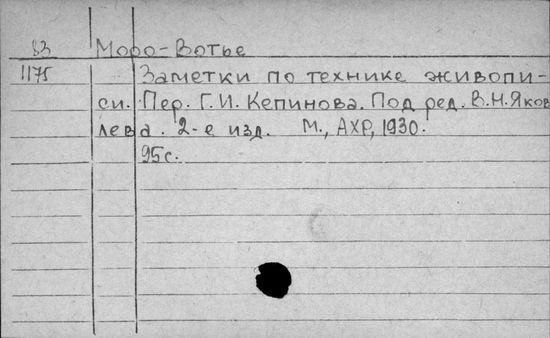 83 Моро-Вотье
1175 Заметки по технике живопи-
си. Пер. Г.И. Кепинова. Под ред. В.Н. Яков
лева. 2-е изд. М., АХР, 1930.
95с.